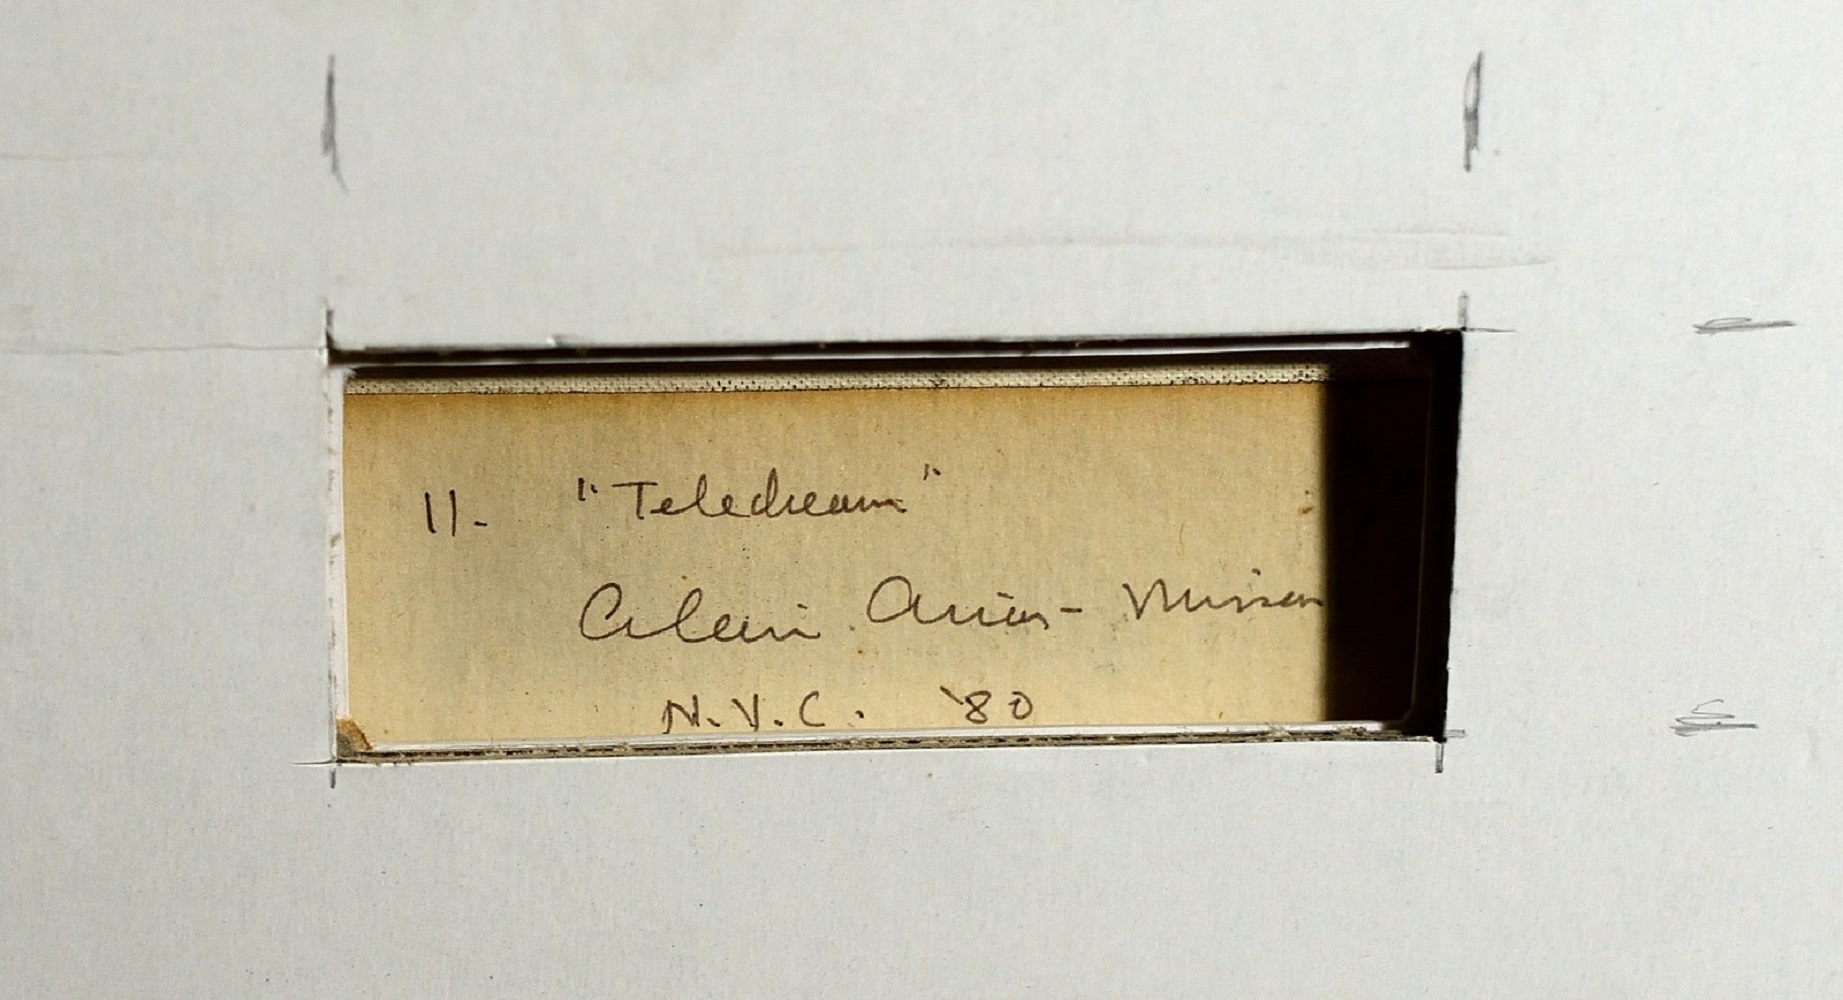 11. "Teledream"
Alain Arias-Misson
N.Y.C. '80